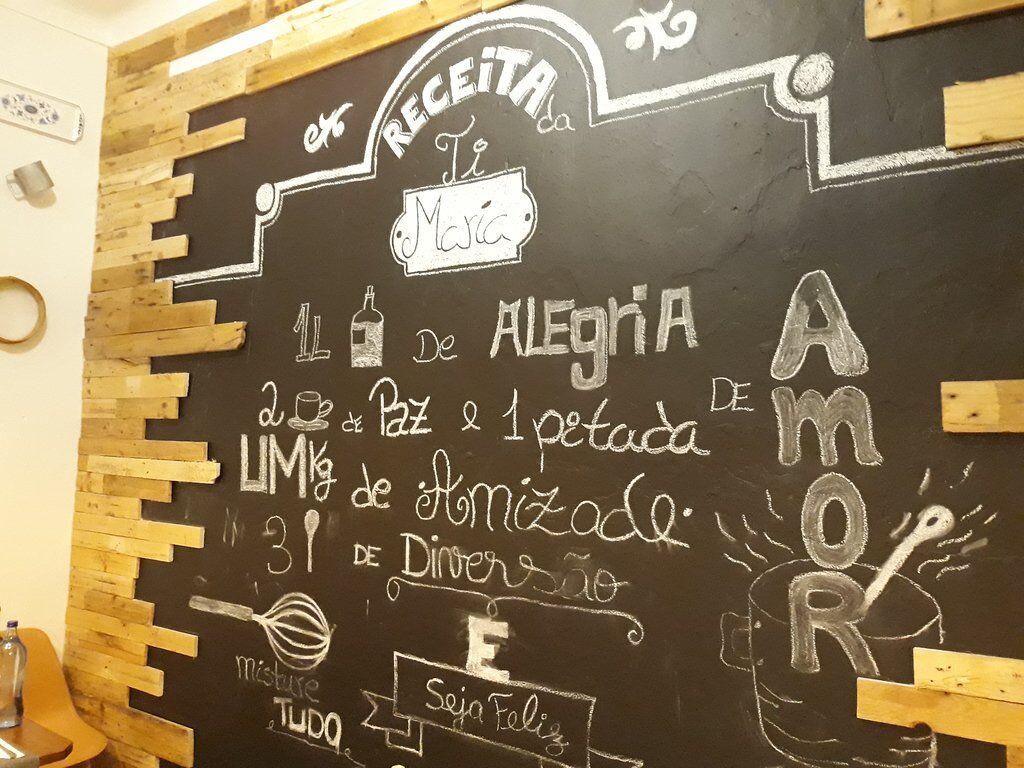 RECEITA da
Ti
Maria
1L DE ALEGRIA
2 de Paz e 1 pitada DE AMOR
UM Kg de Amizade.
3 DE Diversão
misture
TUDO
E
Seja Feliz